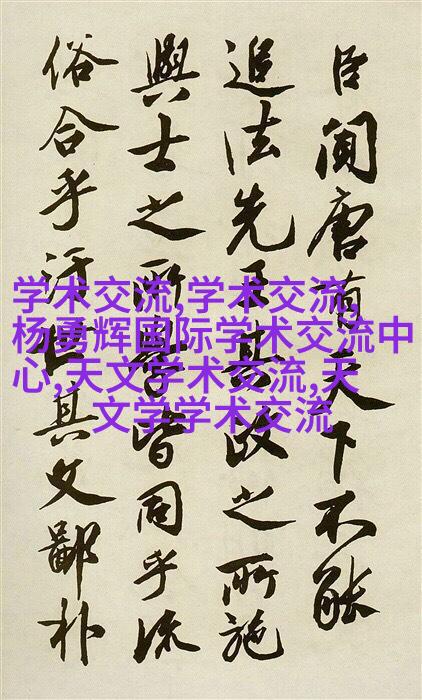 臣聞唐有天下不能
追法先王其政之所施
與士之所學皆同乎流
俗合乎汙世其文鄙朴
学术交流,学术交流,
杨勇辉国际学术交流中
心,天文学术交流,天
文学学术交流